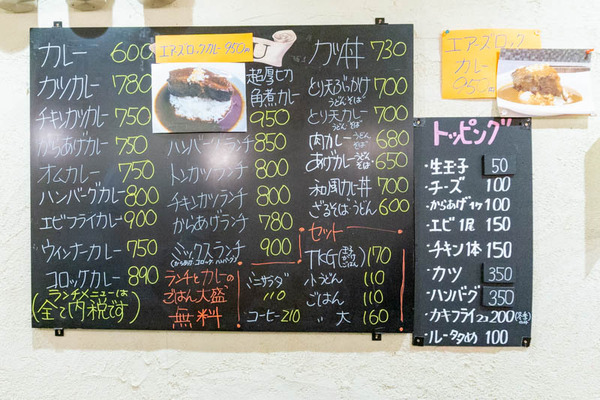 カレー 600
カツカレー 780
チキンカツカレー 750
からあげカレー 750
オムカレー 750
ハンバーグカレー 800
エビフライカレー 900
ウィンナーカレー 750
コロッケカレー 890
ランチメニューは
(全て内税です)
エアーズロックカレー 950円
超厚切
角煮カレー
950
ハンバーグランチ 850
トンカツランチ 800
チキンカツランチ 800
からあげランチ 780
ミックスランチ 900
(からあげ・コロッケ・ハンバーグ)
ランチとカレーの
ごはん大盛
無料
ミニサラダ
110
コーヒー 210
カツ丼 730
とり天ぶっかけ 700
うどん・そば
とり天カレー 700
うどん・そば
肉カレー うどんそば 680
あげカレー うどんそば 650
和風カレー丼 700
ざるそばうどん 600
セット
TKG 170
小うどん 110
ごはん 110
〃 大 160
エアーズロック
カレー
950円
トッピング
・生玉子 50
・チーズ 100
・からあげ1ケ 100
・エビ1尾 150
・チキン1本 150
・カツ 350
・ハンバーグ 350
・カキフライ2コ 200
・ルー多め 100